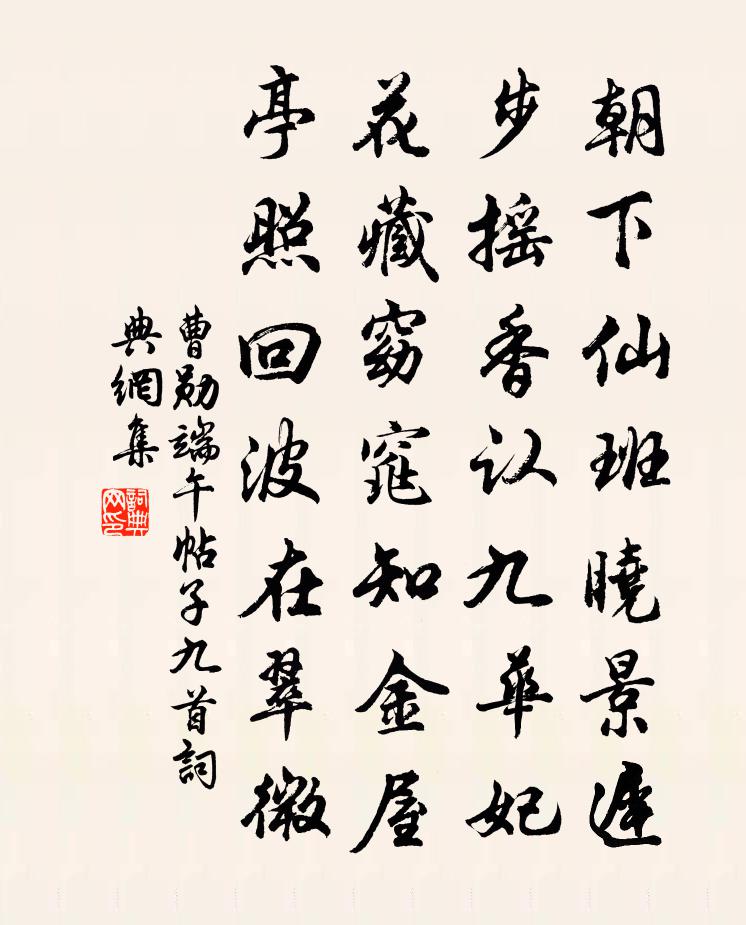 朝下仙班曉景遲
步摇香认九華妃
花藏窈窕知金屋
亭照回波在翠微
曹勛端午帖子九首詞
典網集
詞典
网印